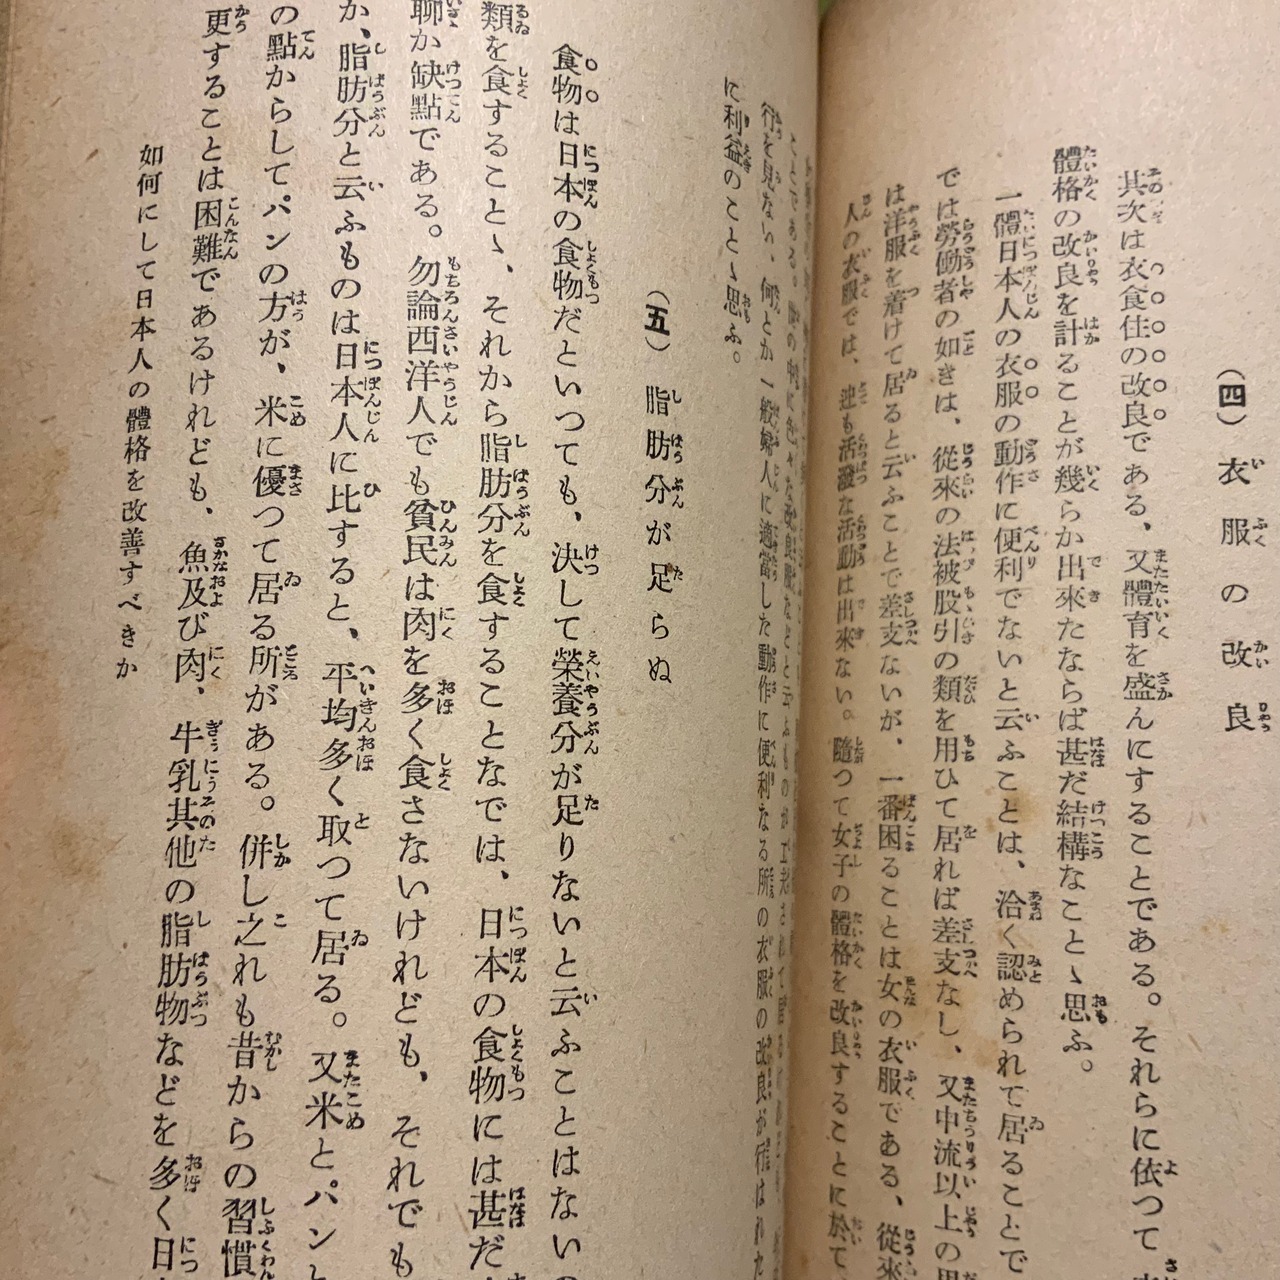 （四）衣服の改良
其次は衣食住の改良である、又體育を盛んにすることである。それらに依つて
體格の改良を計ることが幾らか出來たならば甚だ結構なことゝ思ふ。
一體日本人の衣服の動作に便利でないと云ふことは、洽く認められて居ることで
では勞働者の如きは、從來の法被股引の類を用ひて居れば差支なし、又中流以上の
は洋服を着けて居ると云ふことで差支ないが、一番困ることは女の衣服である、從來
人の衣服では、迚も活潑な活動は出來ない。隨つて女子の體格を改良することに於て
ことである。
行を見ない、何とか一般婦人に適當した動作に便利なる所の衣服の改良が行はれた
に利益のことゝ思ふ。
（五）脂肪分が足らぬ
食物は日本の食物だといつても、決して榮養分が足りないと云ふことはないの
類を食することゝ、それから脂肪分を食することなでは、日本の食物には甚だ
聊か缺點である。勿論西洋人でも貧民は肉を多く食さないけれども、それでも
か、脂肪分と云ふものは日本人に比すると、平均多く取つて居る。又米とパンと
の點からしてパンの方が、米に優つて居る所がある。併し之れも昔からの習慣
更することは困難であるけれども、魚及び肉、牛乳其他の脂肪物などを多く日
如何にして日本人の體格を改善すべきか